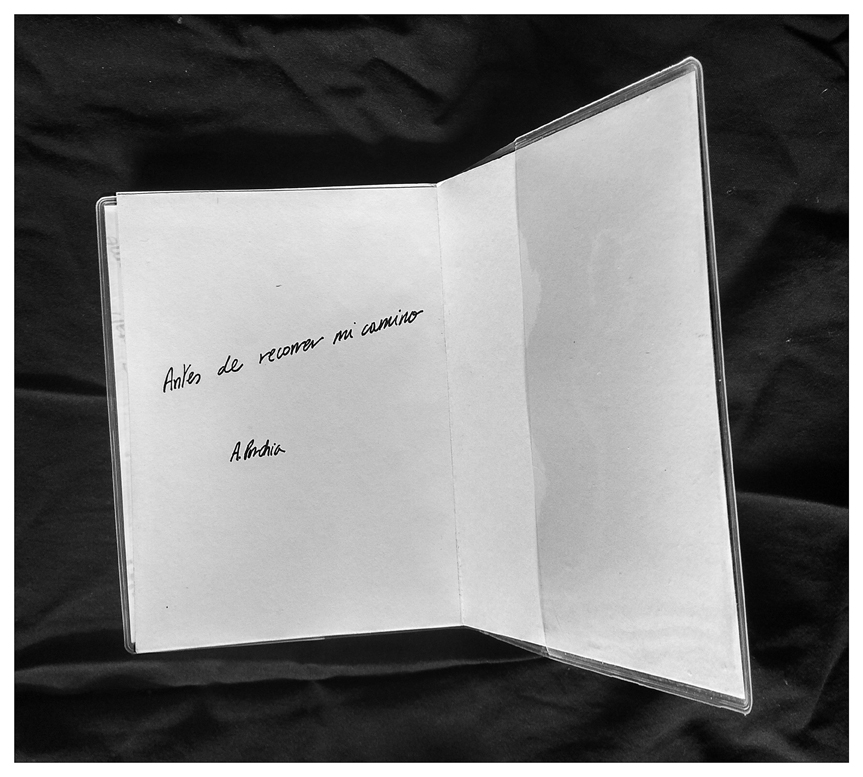 Antes de recorrer mi camino
A. Porchia